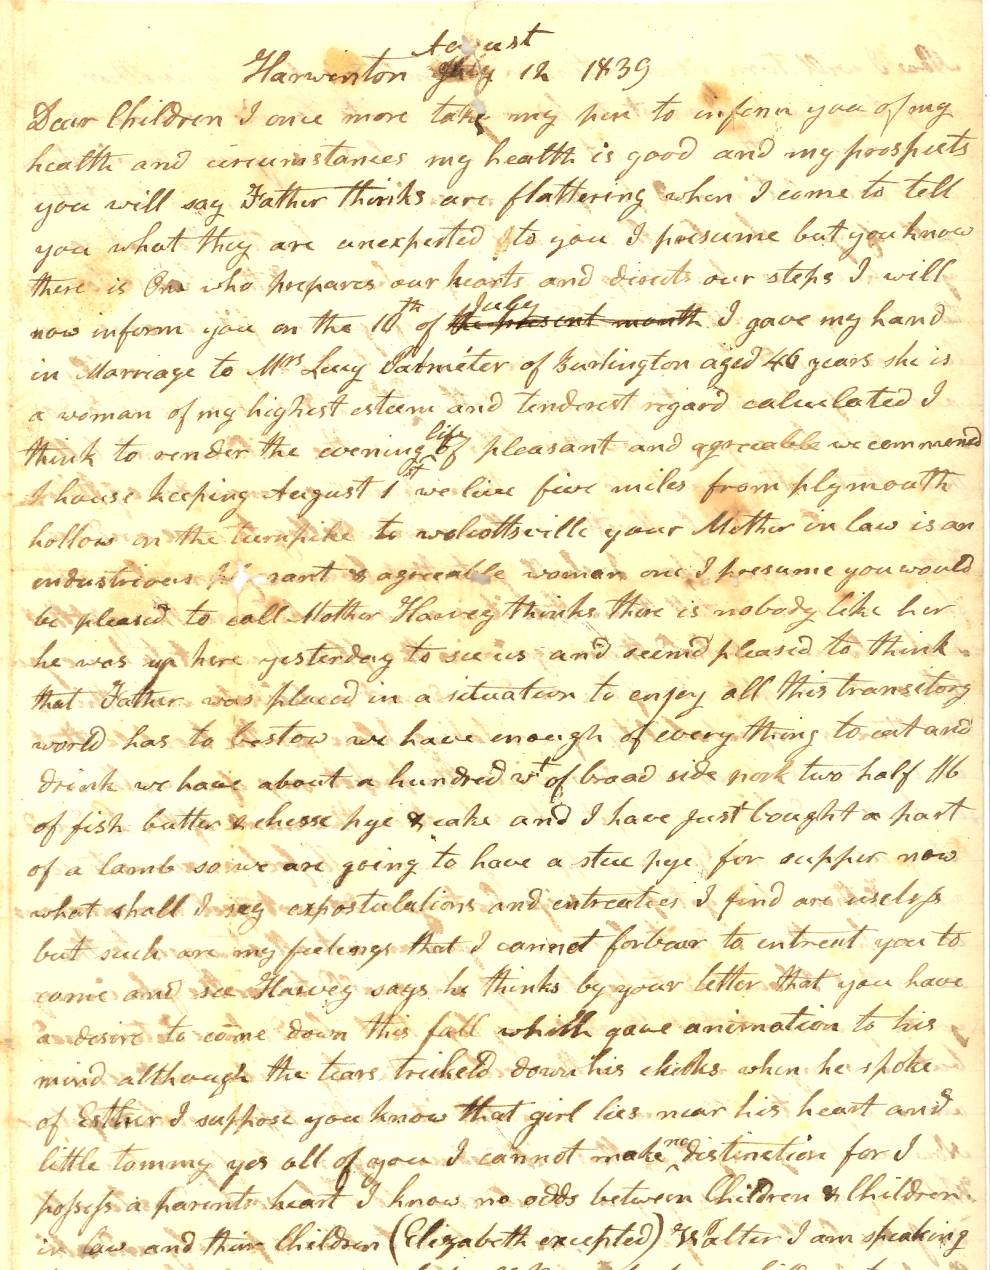 August
Harwinton July 12 1839
Dear Children I once more take my pen to inform you of my
health and circumstances my health is good and my prospects
you will say Father thinks are flattering when I come to tell
you what they are unexpected to you I presume but you know
there is One who prepares our hearts and directs our steps I will
July
now inform you on the 10th of the present month I gave my hand
in Marriage to Mrs Lucy of Burlington aged 46 years she is
a woman of my highest esteem and tenderest regard calculated I
life
think to render the evening of pleasant and agreeable we commencd
house keeping August 1st we live five miles from plymouth
hollow on the turnpike to wolcottsville your Mother in law is an
industrious & agreeable woman one I presume you would
be pleased to call Mother Harvey thinks there is nobody like her
he was up here yesterday to see us and seemd pleased to think
that Father was placed in a situation to enjoy all this transitory
world has to bestow we have enough of every thing to eat and
drink we have about a hundred wt of broad side pork two half bb
of fish butter & cheese pye & cake and I have just bought a part
of a lamb so we are going to have a stue pye for supper now
what shall I say expostulations and entreaties I find are useless
but such are my feelings that I cannot forbear to intreat you to
come and see Harvey says he thinks by your letter that you have
a desire to come down this fall which gave animation to his
mind although the tears trickeld down his cheeks when he spoke
of Esther I suppose you know that girl lies near his heart and
little tommy yes all of you I cannot make no distinction for I
possess a parents heart I know no odds between Children & Children
in law and their Children (Elizabeth excepted) Walter I am speaking